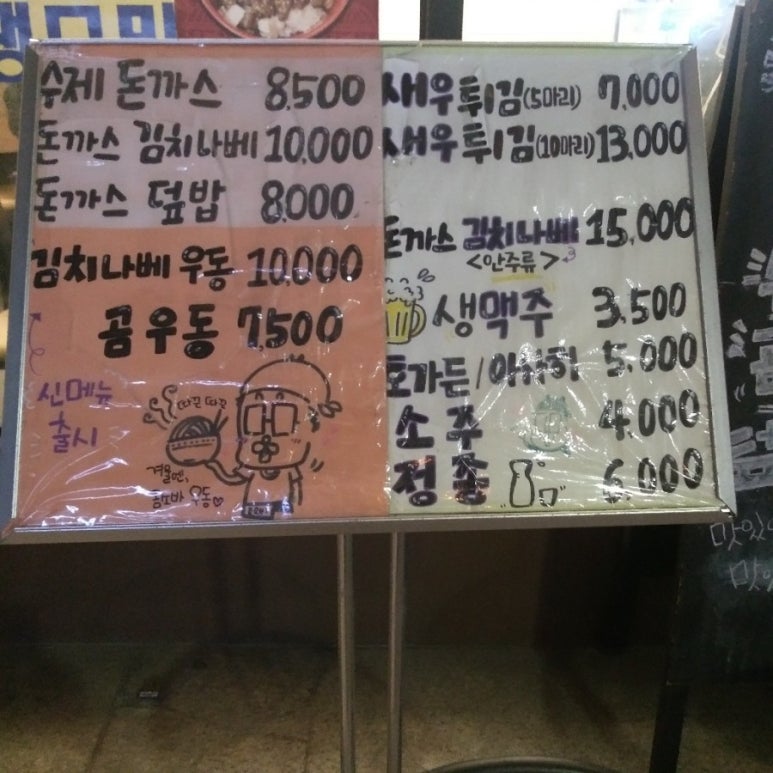 수제 돈까스 8,500
돈까스 김치나베 10,000
돈까스 덮밥 8,000
김치나베 우동 10,000
곰우동 7,500
신메뉴
출시
따끈따끈
겨울엔,
우동♡
새우튀김(5마리) 7,000
새우튀김(10마리) 13,000
돈까스 김치나베 15,000
<안주류>
생맥주 3,500
호가든/아사히 5,000
소주 4,000
정종 6,000
맛있
맛있